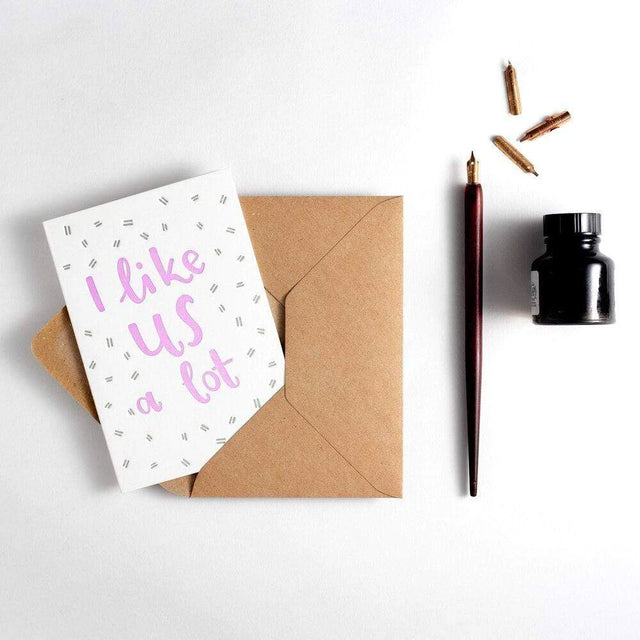 I like
us
a lot